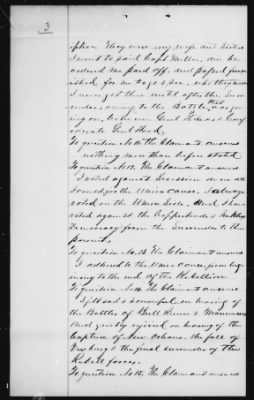 3
ception they were my wife and Sister
I went to said Capt Miller, and he
ordered me paid off, and papers furn
ished for me to go & see, which papers
I never got then until after the Sur
render, owing to the Battle then was go
ing on, between Genl Thomas & Conf
ederate Genl Hood.
To question No 11th The Claimant answers
nothing more than before stated
To question No 12th The Claimant answers
I voted against Secession and was
always for the Union cause. I always
voted on the Union Side, and I have
voted against the Copperheads &
Democracy from the Surrender to the
present.
To question No 13 The Claimant answers
I adhered to the Union cause from beg
inning to the end of the Rebellion
To question No 14 The Claimant answers
I felt sad & sorrowful on hearing of
the Battles of Bull Runn & Mannassas
And greatly rejoiced on hearing of the
Capture of New Orleans, the fall of
Vicksburg & the final surrender of the
Rebell forces.
To question No 15 The Claimant answers